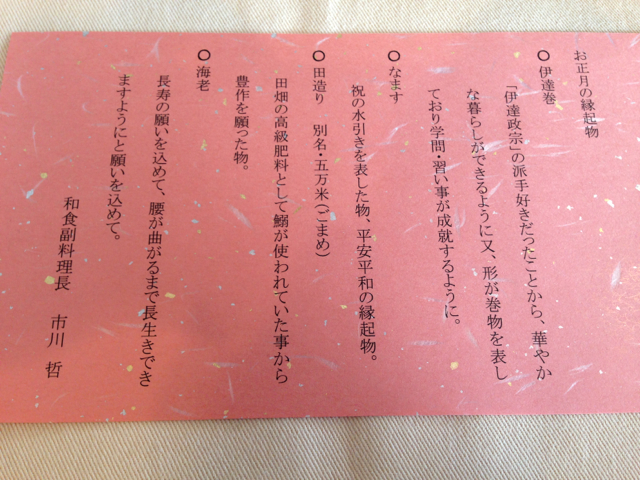 お正月の縁起物
○伊達巻
「伊達政宗」の派手好きだったことから、華やか
な暮らしができるように又、形が巻物を表し
ており学問・習い事が成就するように。
○なます
祝の水引きを表した物、平安平和の縁起物。
○田造り 別名・五万米(ごまめ)
田畑の高級肥料として鰯が使われていた事から
豊作を願った物。
○海老
長寿の願いを込めて、腰が曲がるまで長生きでき
ますようにと願いを込めて。
和食副料理長 市川 哲